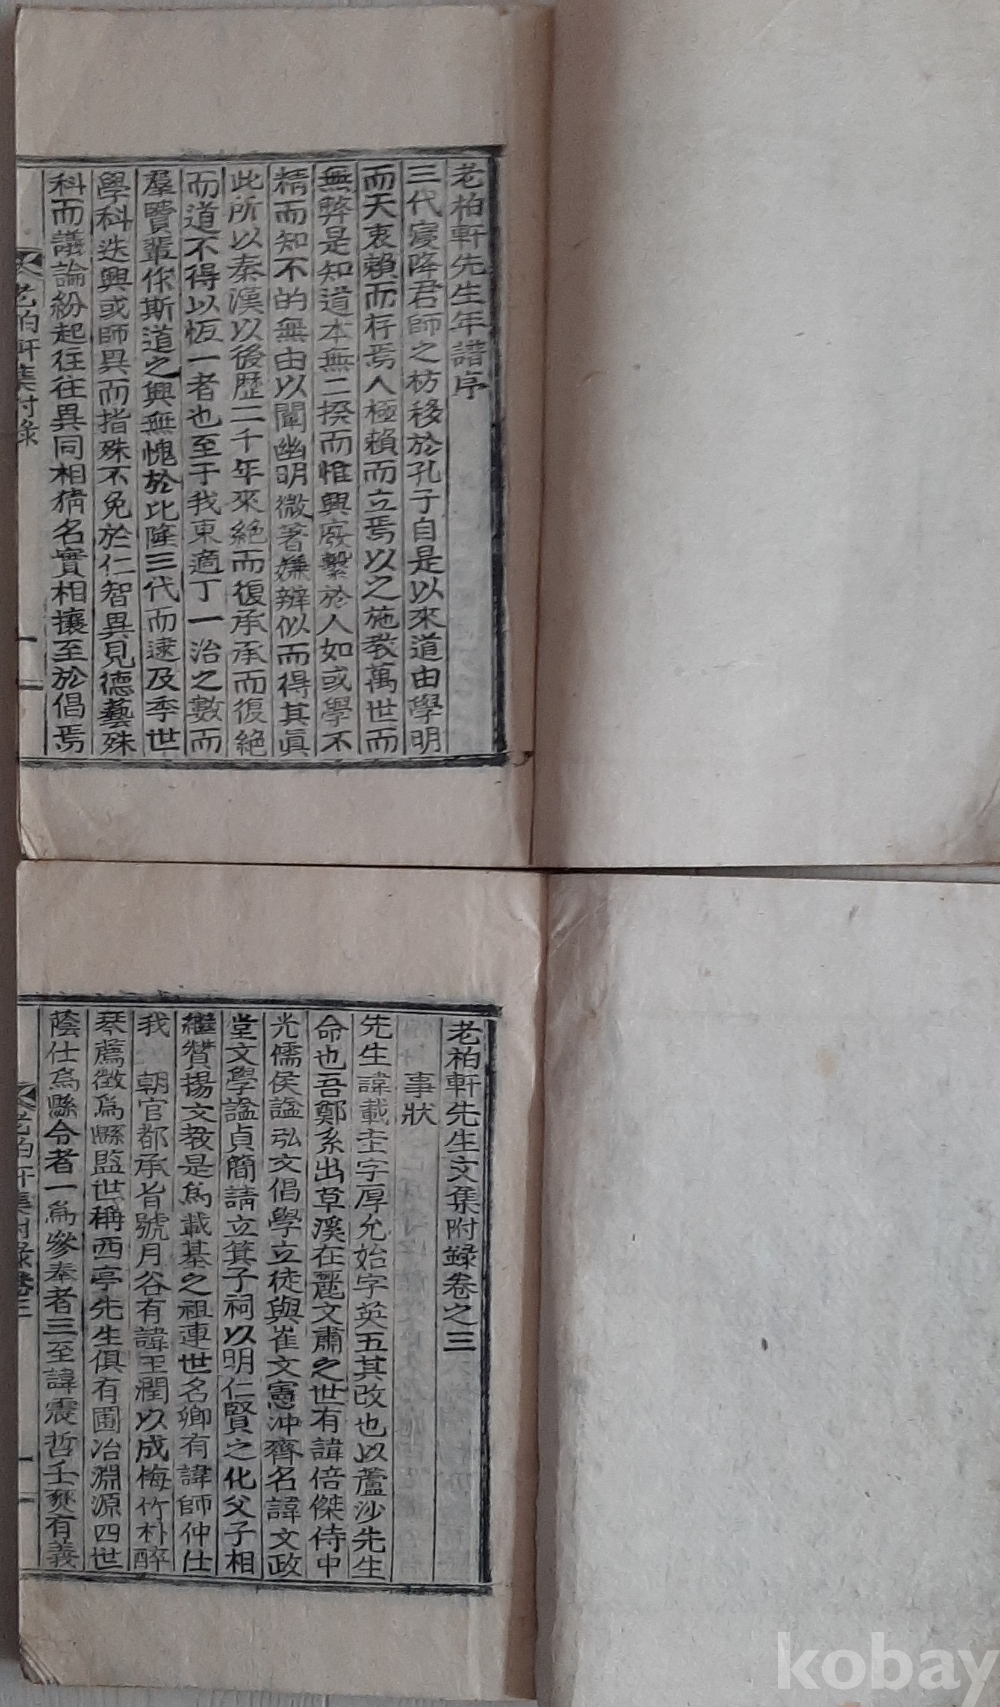 老柏軒先生年譜序
三代寖降君師之枋移於孔子自是以來道由學明
而天衷賴而存焉人極賴而立焉以之施敎萬世而
無弊是知道本無二揆而惟興廢繫於人如或學不
精而知不的無由以闡幽明微著嫌辨似而得其眞
此所以秦漢以後歷二千年來絕而復承承而復絕
而道不得以恆一者也至于我東適丁一治之數而
羣賢輩作斯道之興無愧於比隆三代而逮及季世
學科迭興或師異而指殊不免於仁智異見德藝殊
科而議論紛起往往異同相猜名實相攘至於倡焉
老柏軒集附錄
一
老柏軒先生文集附錄卷之三
事狀
先生諱載圭字厚允始字英五其改也以蘆沙先生
命也吾鄭系出草溪在麗文肅之世有諱倍傑侍中
光儒侯諡弘文倡學立徒與崔文憲沖齊名諱文政
堂文學諡貞簡請立箕子祠以明仁賢之化父子相
繼贊揚文敎是爲載基之祖連世名卿有諱師仲仕
我 朝官都承旨號月谷有諱玉潤以成梅竹朴醉
琴薦徵爲縣監世稱西亭先生俱有圃冶淵源四世
蔭仕爲縣令者一爲參奉者三至諱震哲壬燹有義
老柏軒集附錄卷三
一
kobay